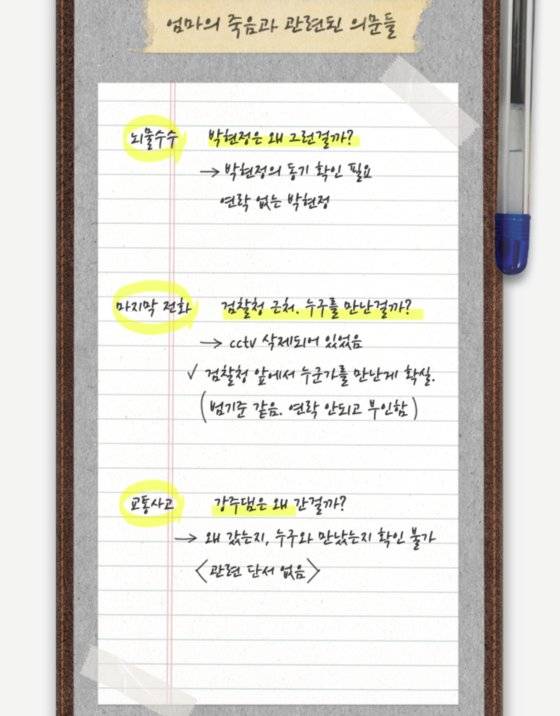 엄마의 죽음과 관련된 의문들
뇌물수수 박현정은 왜 그런걸까?
→ 박현정의 동기 확인 필요
연락 없는 박현정
마지막 전화 검찰청 근처. 누구를 만난걸까?
→ cctv 삭제되어 있었음
✓ 검찰청 앞에서 누군가를 만난게 확실.
(범기준 같음. 연락 안되고 부인함)
교통사고 강주댐은 왜 간걸까?
→ 왜 갔는지, 누구와 만났는지 확인 불가
<관련 단서 없음>